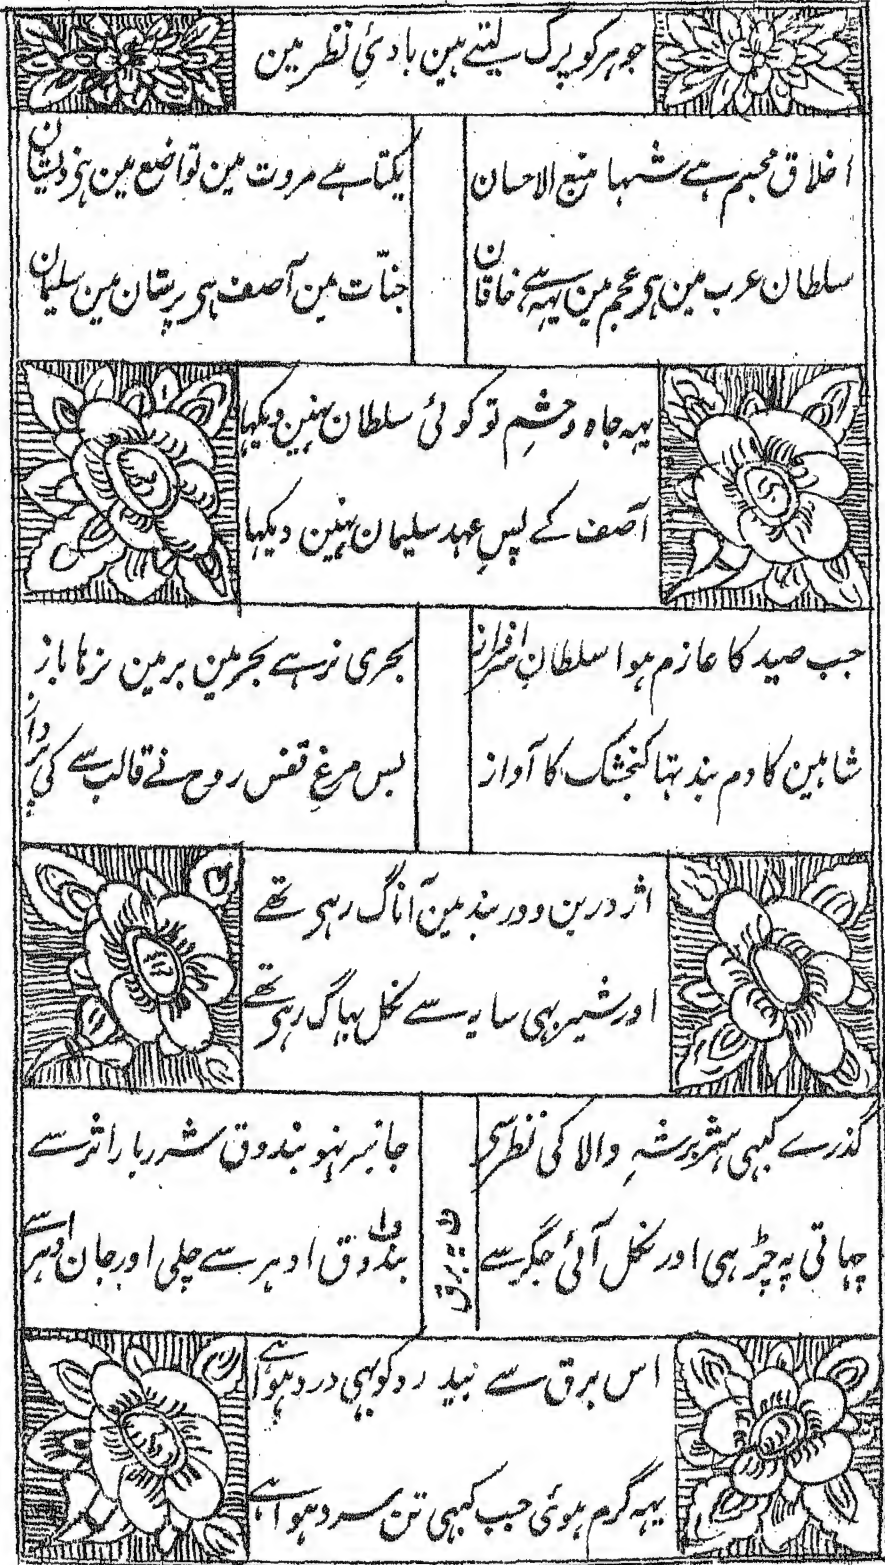 جوہر کو پرکہ لیتے ہین بادئِ نظر مین
اخلاق مجسم ہے شہا منبع الاحسان
یکتا ہے مروت مین تواضع مین ہی ذیشان
سلطان عرب مین ہی عجم مین یہہ ہے خاقان
جنّات مین آصف ہی پرستان مین سلیمان
یہہ جاہ و حشم تو کوئی سلطان نہین دیکہا
آصف کے پسِ عہد سلیمان نہین دیکہا
جب صید کا عازم ہوا سلطانِ سرافراز
بحری نر ہے بحر مین بر مین نرہا باز
شاہین کا دم بند تہا کنجشک کا آواز
بس مرغِ قفس روح نے قالب سے کی پرواز
اژدر بن و در بند مین آناگ رہی تھے
اور شیر بہی سایہ سے نکل بہاگ رہی تھے
گذرے کبہی ہژبر شہِ والا کی نظر سی
جانبر نہو بندوق شرر بار اثر سے
چہاتی پہ چڑہی اور نکل آئی جگر سے
بندوق اودہر سے چلی اور جان ادہر سے
اس برق سے بیدرد کو بہی درد ہوا ہے
یہہ گرم ہوئی جب کبہی تن سرد ہوا ہے